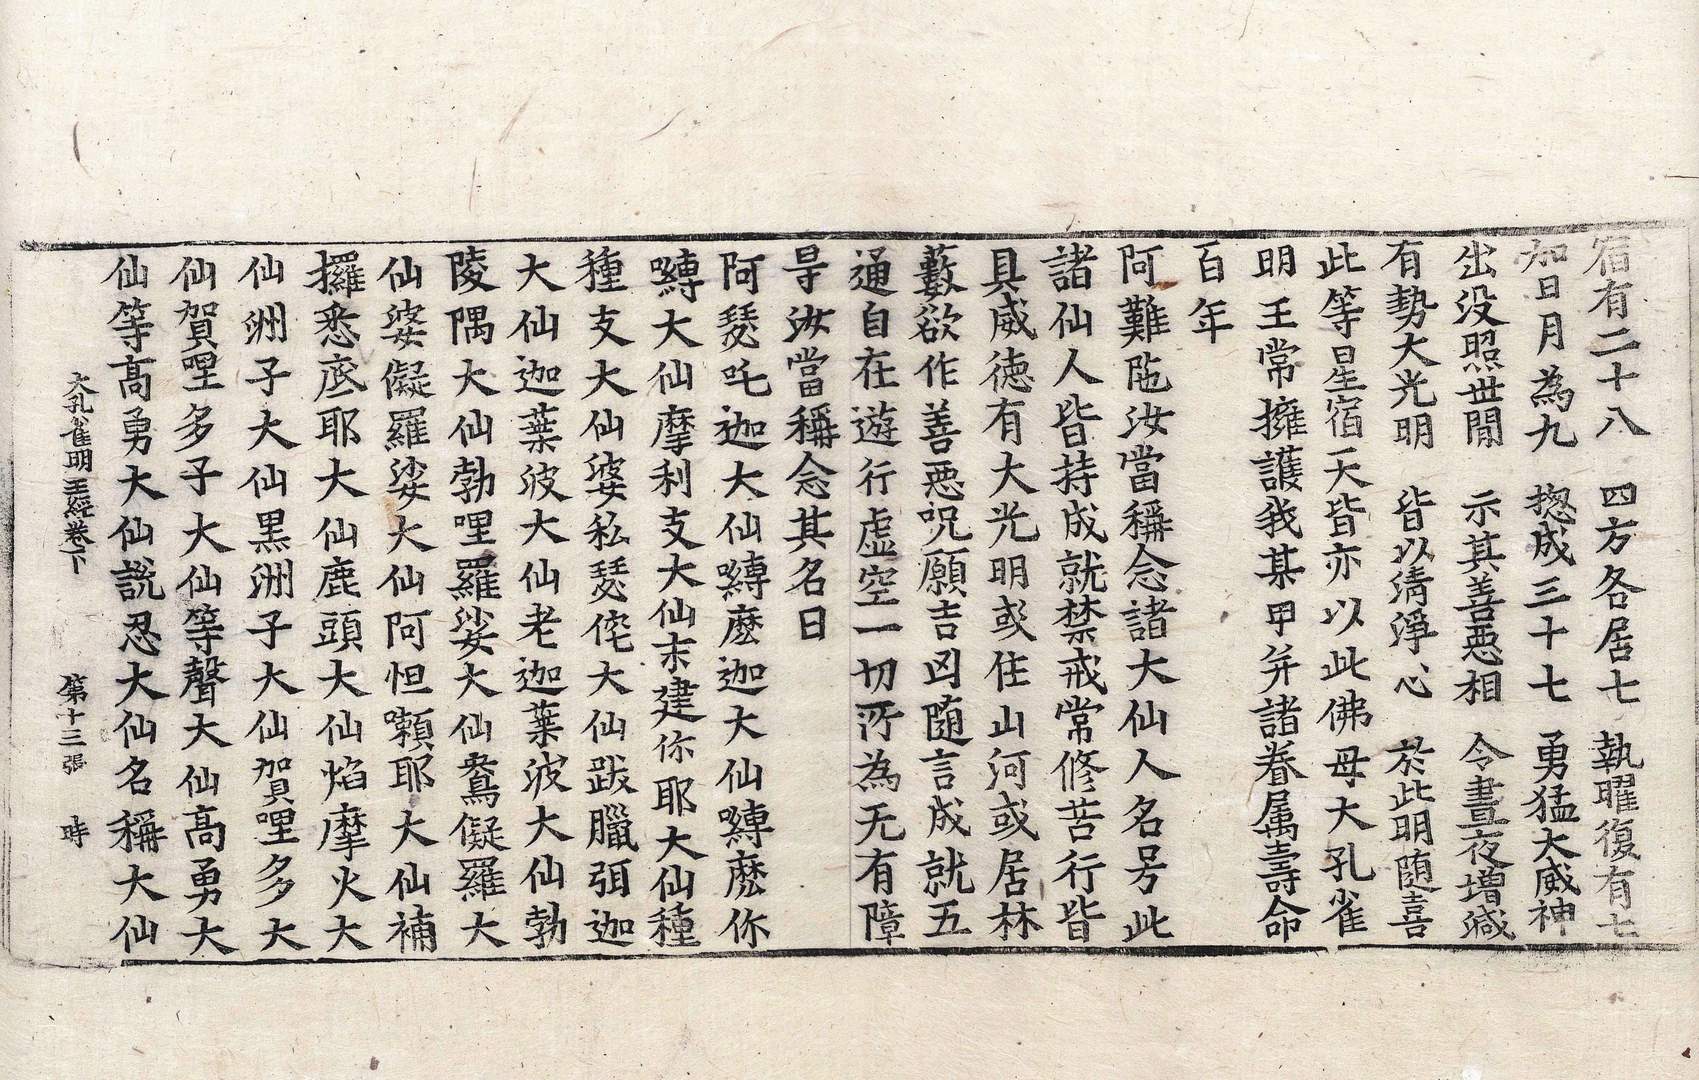 宿有二十八 四方各居七 執曜復有七
加日月為九 揔成三十七 勇猛大威神
出没照世間 示其善惡相 令晝夜增減
有勢大光明 皆以清淨心 於此明随喜
此等星宿天皆亦以此佛母大孔雀
明王常擁護我某甲并諸眷属壽命
百年
阿難陁汝當稱念諸大仙人名号此
諸仙人皆持成就禁戒常修苦行皆
具威德有大光明或住山河或居林
藪欲作善惡呪願吉凶随言成就五
通自在遊行虛空一切所為无有障
㝵汝當稱念其名曰
阿瑟吒迦大仙嚩麽迦大仙嚩麽你
嚩大仙摩利支大仙末建你耶大仙種
種支大仙婆私瑟侘大仙跋臘弭迦
大仙迦葉波大仙老迦葉波大仙勃
陵隅大仙勃哩羅娑大仙鴦儗羅大
仙婆儗羅娑大仙阿怛嚩耶大仙補
攞悉底耶大仙鹿頭大仙焰摩火大
仙洲子大仙黑洲子大仙賀哩多大
仙賀哩多子大仙等聲大仙高勇大
仙等高勇大仙說忍大仙名稱大仙
大孔雀明王經卷下 第十三張 時